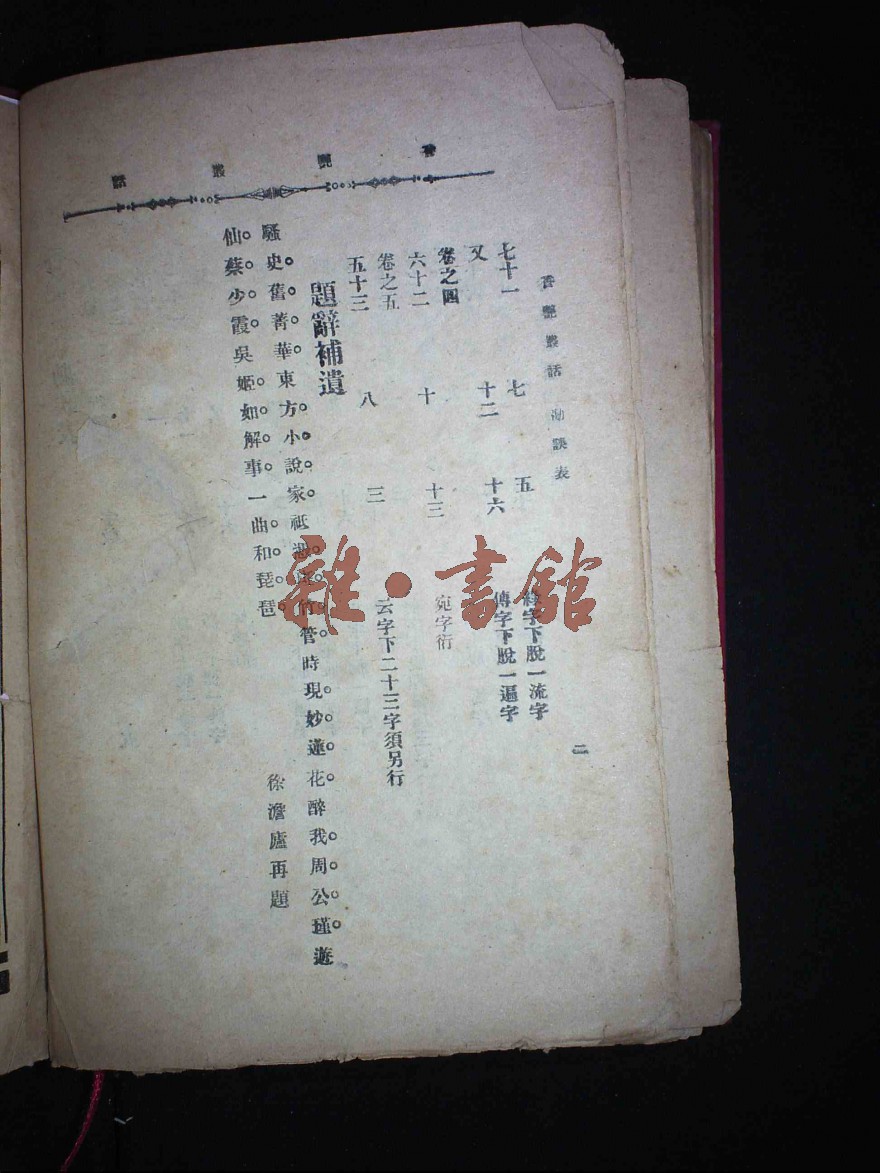 香艷叢話
香艷叢話 勘誤表 二
七十一 七 五 字下脫一流字
又 十二 十六 傳字下脫一遍字
卷之四
六十二 十 十三 宛字衍
卷之五
五十三 八 三 云字下二十三字須另行
題辭補遺
騷史舊菁華東方小說家祗竹管時現妙蓮花醉我周公瑾遊
仙蔡少霞吳姬如解事一曲和琵琶
徐澹廬再題
雜·書館